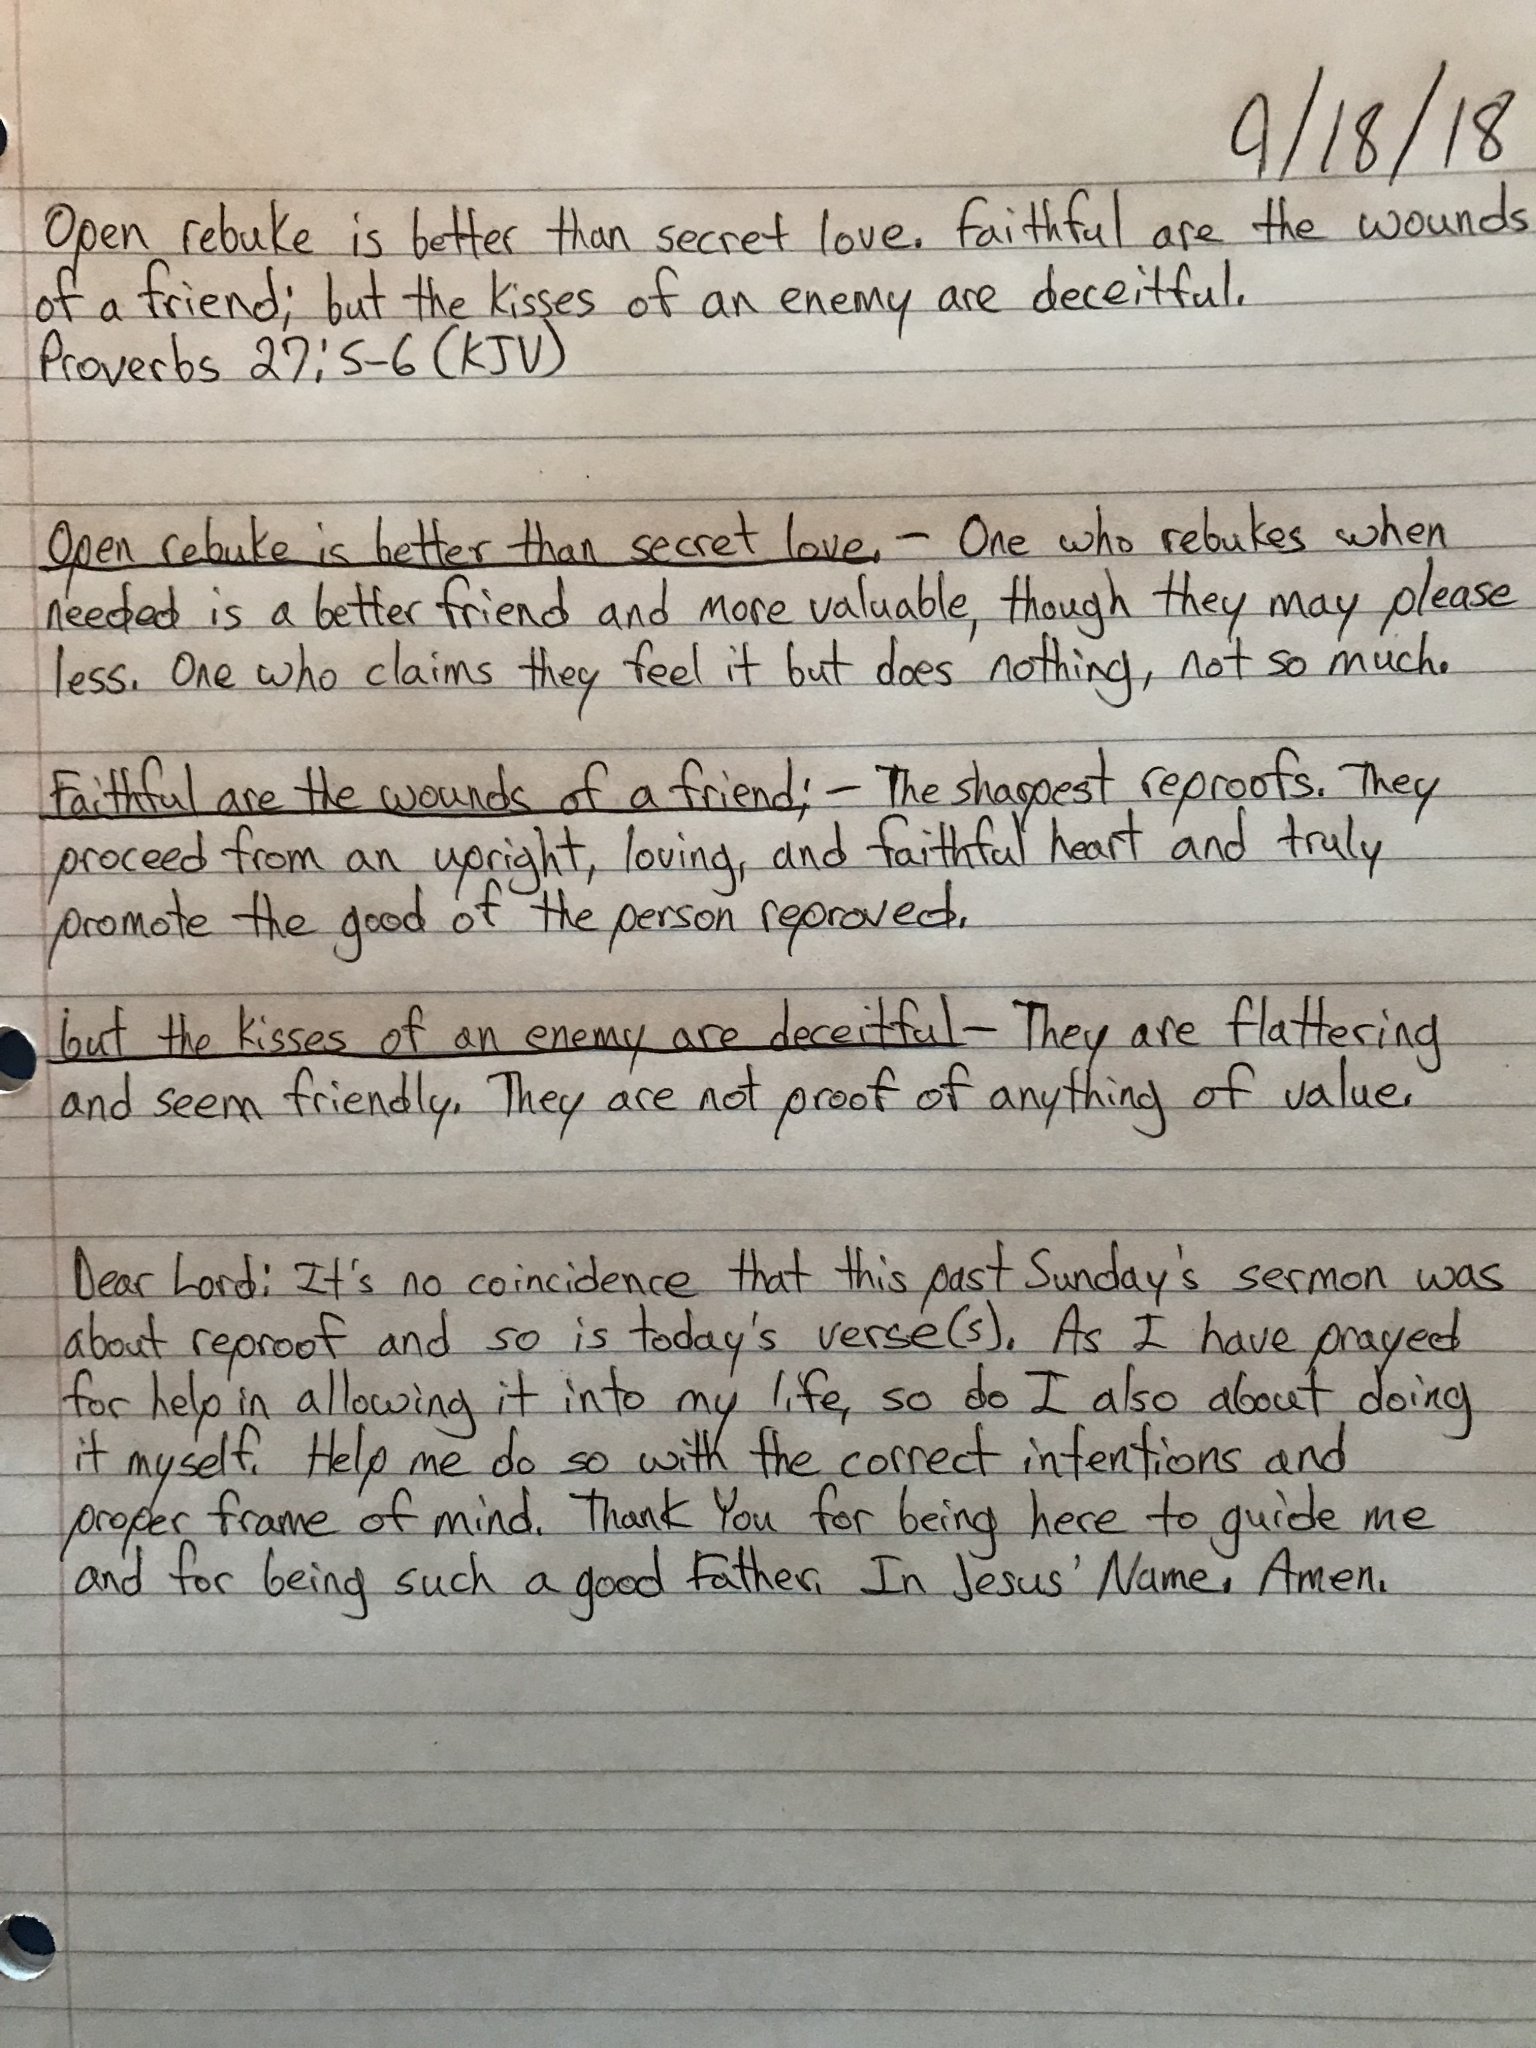 9/18/18
Open rebuke is better than secret love. Faithful are the wounds
of a friend; but the kisses of an enemy are deceitful.
Proverbs 27:5-6 (KJV)
Open rebuke is better than secret love. - One who rebukes when
needed is a better friend and more valuable, though they may please
less. One who claims they feel it but does nothing, not so much.
Faithful are the wounds of a friend; - The sharpest reproofs. They
proceed from an upright, loving, and faithful heart and truly
promote the good of the person reproved.
but the kisses of an enemy are deceitful - They are flattering
and seem friendly. They are not proof of anything of value.
Dear Lord: It's no coincidence that this past Sunday's sermon was
about reproof and so is today's verse(s). As I have prayed
for help in allowing it into my life, so do I also about doing
it myself. Help me do so with the correct intentions and
proper frame of mind. Thank You for being here to guide me
and for being such a good Father. In Jesus' Name. Amen.